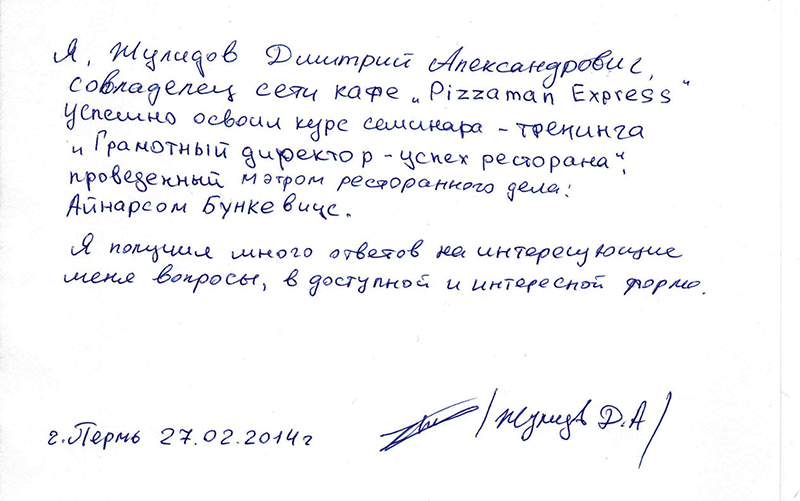 Я, Жулидов Дмитрий Александрович,
совладелец сети кафе „Pizzaman Express"
успешно освоил курс семинара - тренинга
„Грамотный директор - успех ресторана",
проведенный мэтром ресторанного дела:
Айнарсом Бункевицс.
Я получил много ответов на интересующие
меня вопросы, в доступной и интересной форме.
г. Пермь 27.02.2014г /Жулидов Д.А/